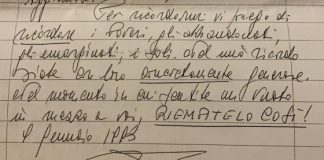 Per ricordarmi vi prego di
ricordare i poveri, gli abbandonati,
gli emarginati, i soli. Nel mio ricordo
siate con loro concretamente generosi.
Nel momento in cui sentite un vuoto
in mezzo a voi, RIEMPITELO COSÌ!
Gennaio 1993